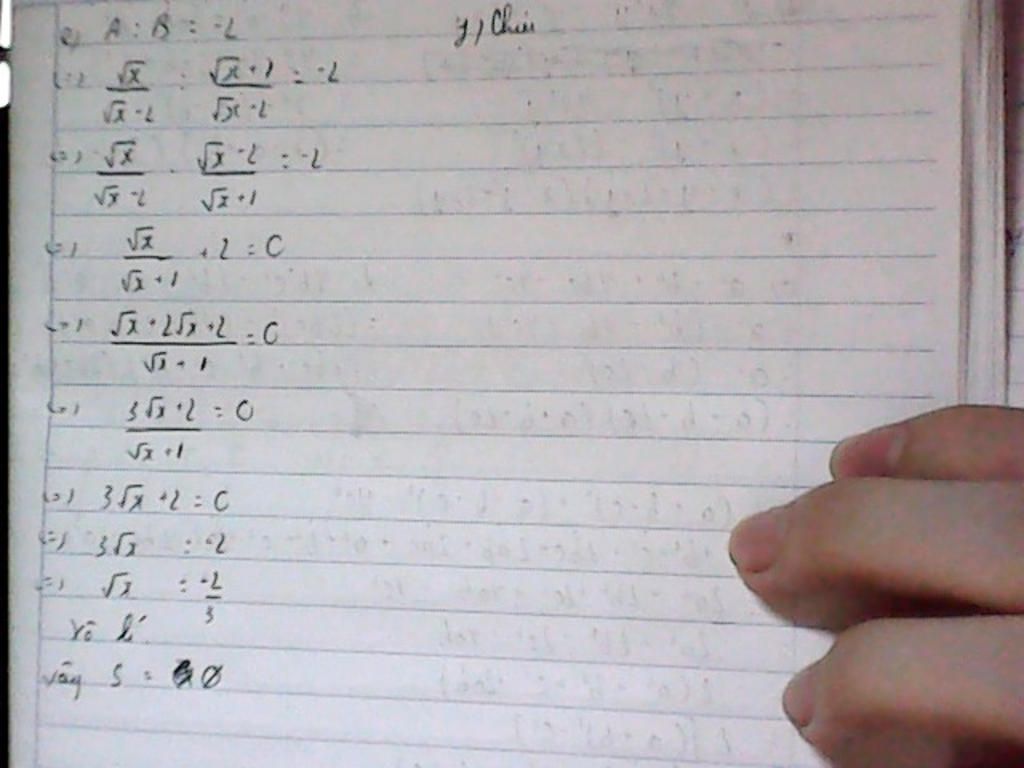 e, A : B = -2
<=> √x / (√x - 2) : (√x + 1) / (√x - 2) = -2
<=> √x / (√x - 2) . (√x - 2) / (√x + 1) = -2
<=> √x / (√x + 1) + 2 = 0
<=> (√x + 2√x + 2) / (√x + 1) = 0
<=> (3√x + 2) / (√x + 1) = 0
<=> 3√x + 2 = 0
<=> 3√x = -2
<=> √x = -2 / 3
Vô lí.
vậy S = ∅